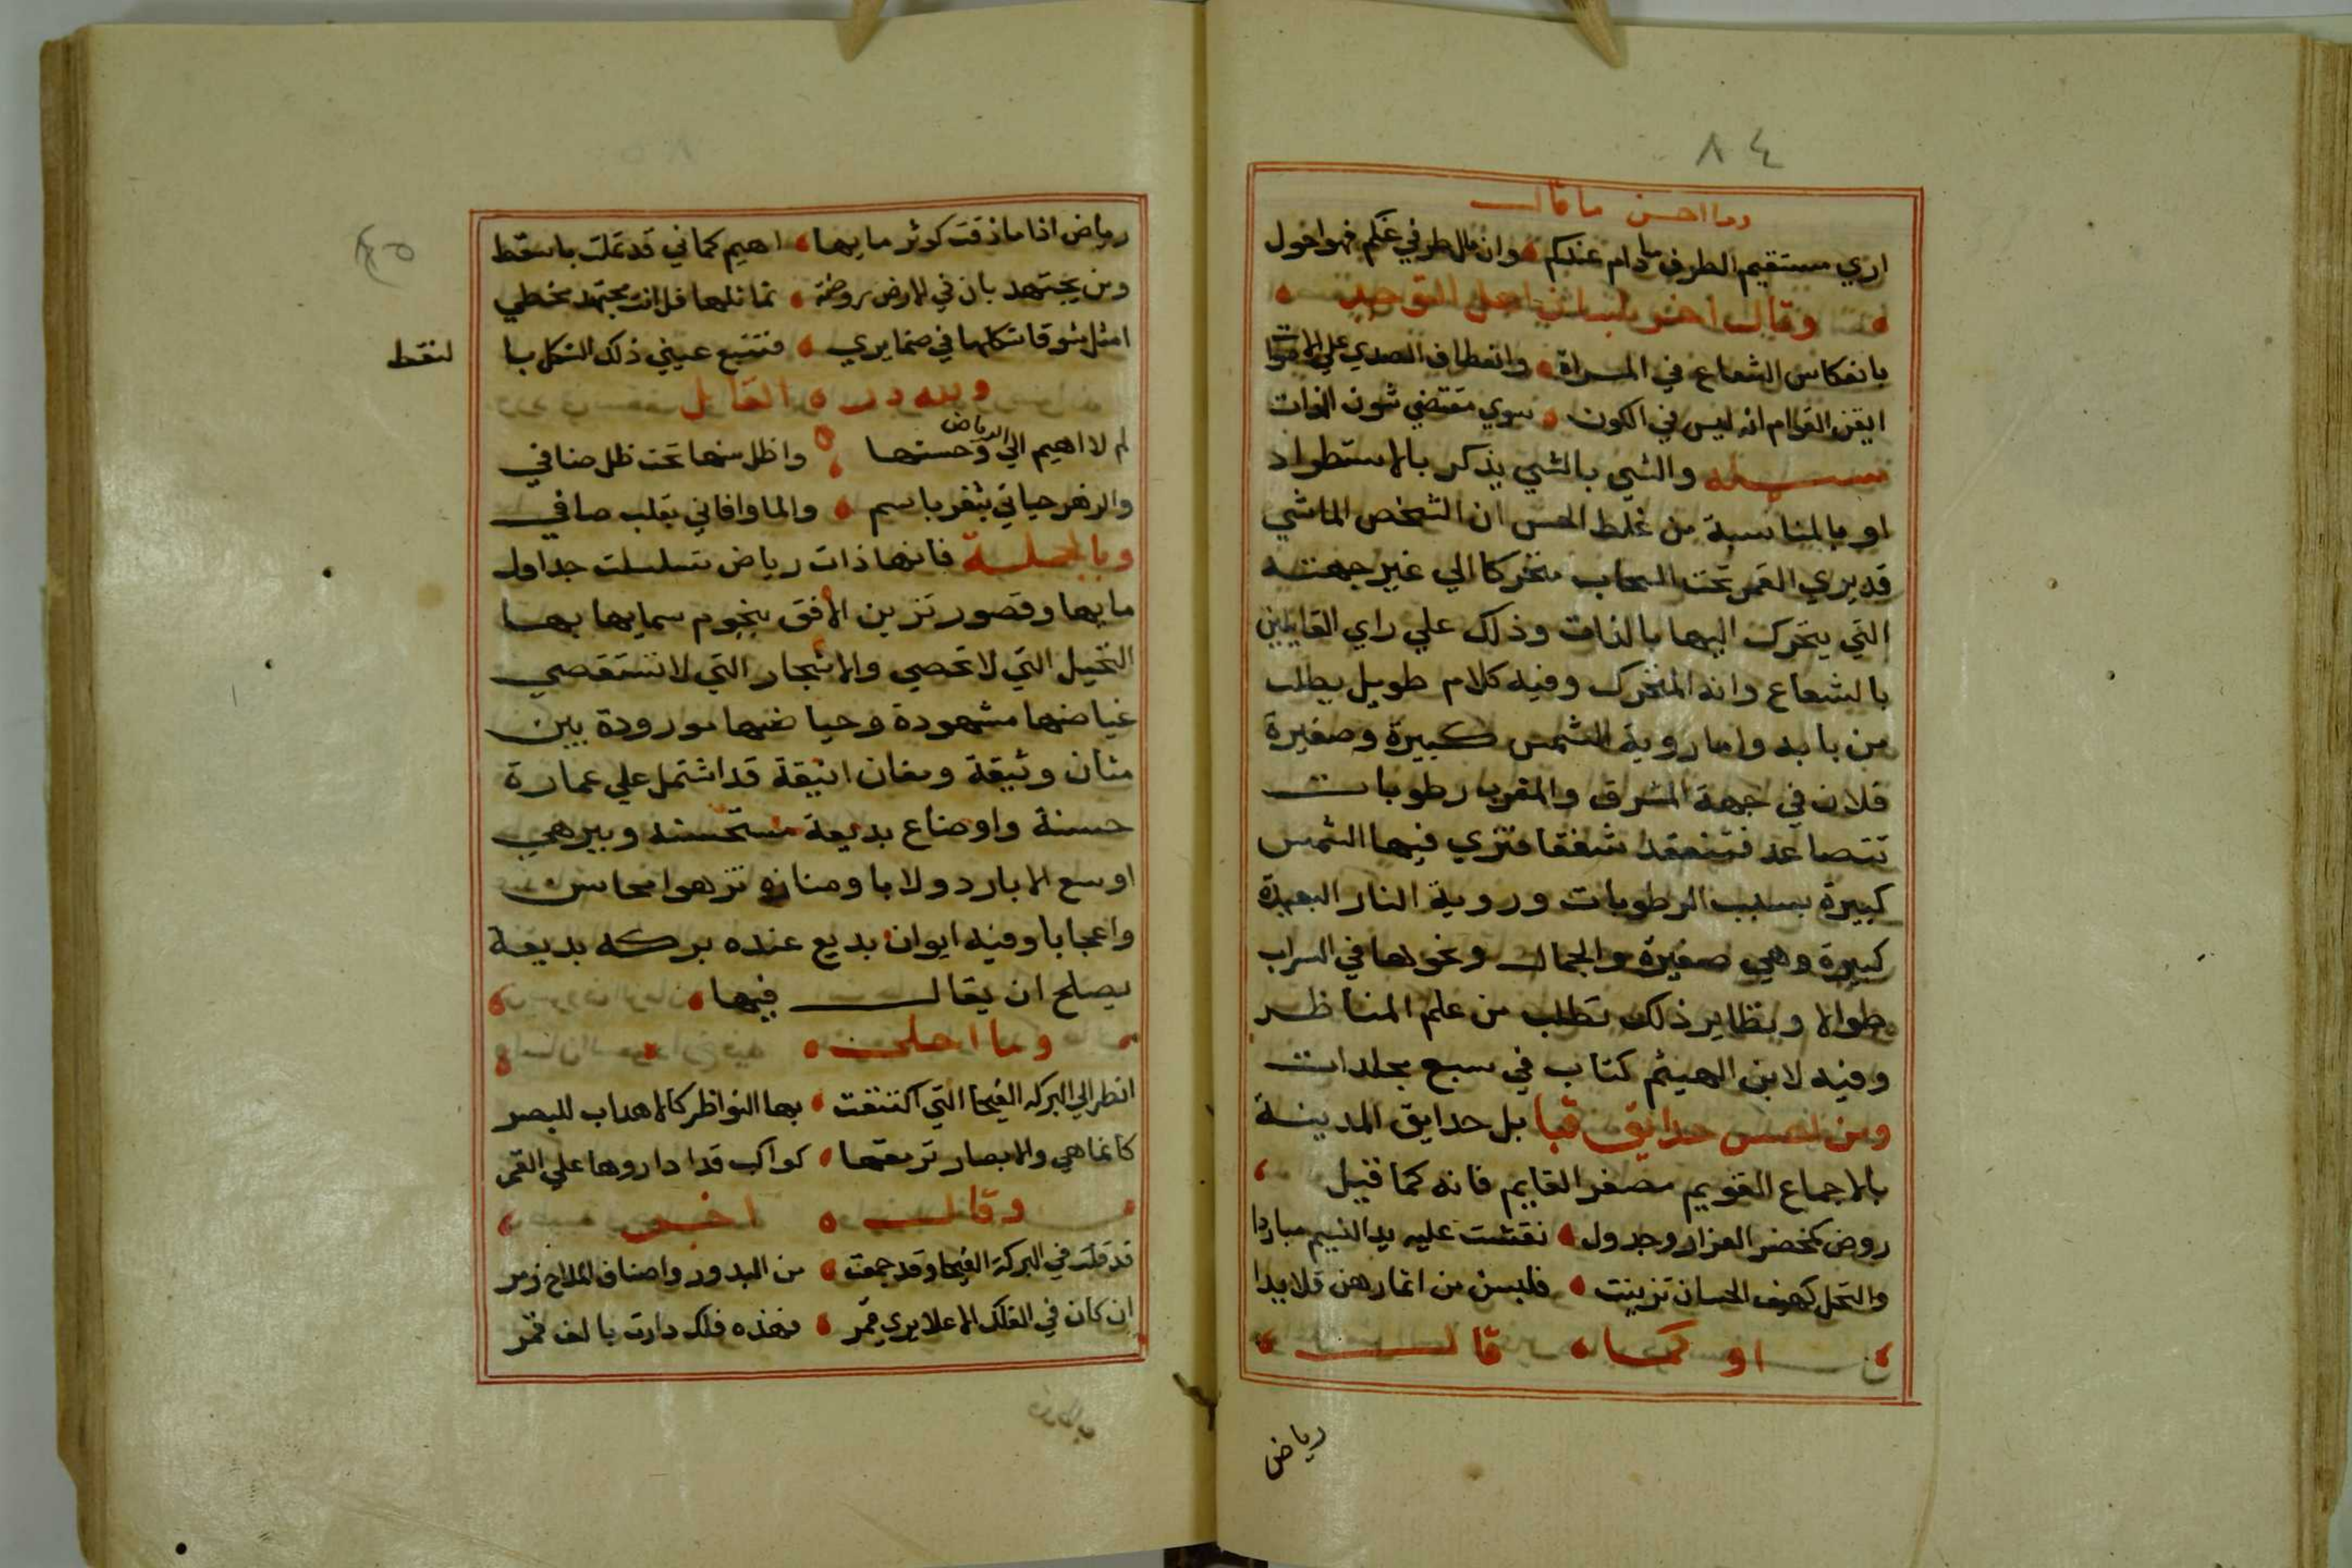 ٨٤
وما احسن ما قال
اري مستقيم الطرف ما دام عندكم وان مال طرفي عنكم فهو احول
وقال اخر بلسان اهل التوحيد
بانعكاس الشعاع في المراة وانعطاف الصدي علي الاصوات
ايقن القوام انه ليس في الكون سوي مقتضي شون الذات
تنبيه والشي بالشي يذكر بالاستطراد
او بالمناسبة من غلط الحس ان الشخص الماشي
قد يري القمر تحت السحاب متحركا الي غير جهته
التي يتحرك اليها بالذات وذلك علي راي القايلين
بالشعاع وانه المتحرك وفيه كلام طويل يطلب
من بابه واما روية الشمس كبيرة وصغيرة
فلان في جهة المشرق والمغرب رطوبات
تتصاعد فتنعقد شفقا فتري فيها الشمس
كبيرة بسبب الرطوبات وروية النار البعيدة
كبيرة وهي صغيرة والجمال ونحوها في السراب
طوالا ونظاير ذلك تطلب من علم المناظر
وفيه لابن الهيثم كتاب في سبع مجلدات
ومن احسن حدائق قبا بل حدايق المدينة
بالاجماع القويم مصغر القايم فانه كما قيل
روض كمخضر العزار وجدول نقشت عليه يد النسيم مباردا
والنخل كهيف الحسان تزينت فلبسن من اثمارهن قلايدا
او كما قال
رياض
رياض اذا ما ذقت كوثر مايها اهيم كماني قد تملت باسقط
ومن يجتهد بان في الارض روضة تماثلها قل انت مجتهد مخطي
امثل شوقا شكلها في ضمايري فتتبع عيني ذلك الشكل با
لنقط
ولله دره القايل
لم لا اهيم الي الرياض وحسنها واظل منها تحت ظل ضافي
والزهر حياني بثغر باسم والما وافاني بقلب صافي
وبالجملة فانها ذات رياض تسلسلت جداول
مايها وقصور تزين الافق بنجوم سمايها بها
النخيل التي لا تحصي والاشجار التي لا تستقصي
غياضها مشهودة وحياضها مورودة بين
مثان وثيقة ومغان انيقة قد اشتمل علي عمارة
حسنة واوضاع بديعة مستحسنه وبير هي
اوسع الابار دولابا ومنازه تزهوا محاسن
واعجابا وفيه ايوان بديع عنده بركه بديعة
يصلح ان يقال فيها
وما احلي
انظر الي البركه الفيحا التي اكتنفت بها النواظر كالاهداب للبصر
كانما هي والابصار ترمقها كواكب قد اداروها علي القمر
وقال اخر
قد قلت في البركة الفيحا وقد جمعت من البدور واصناف الملاح زمر
ان كان في الفلك الاعلا يري قمر فهذه فلك دارت بالف قمر